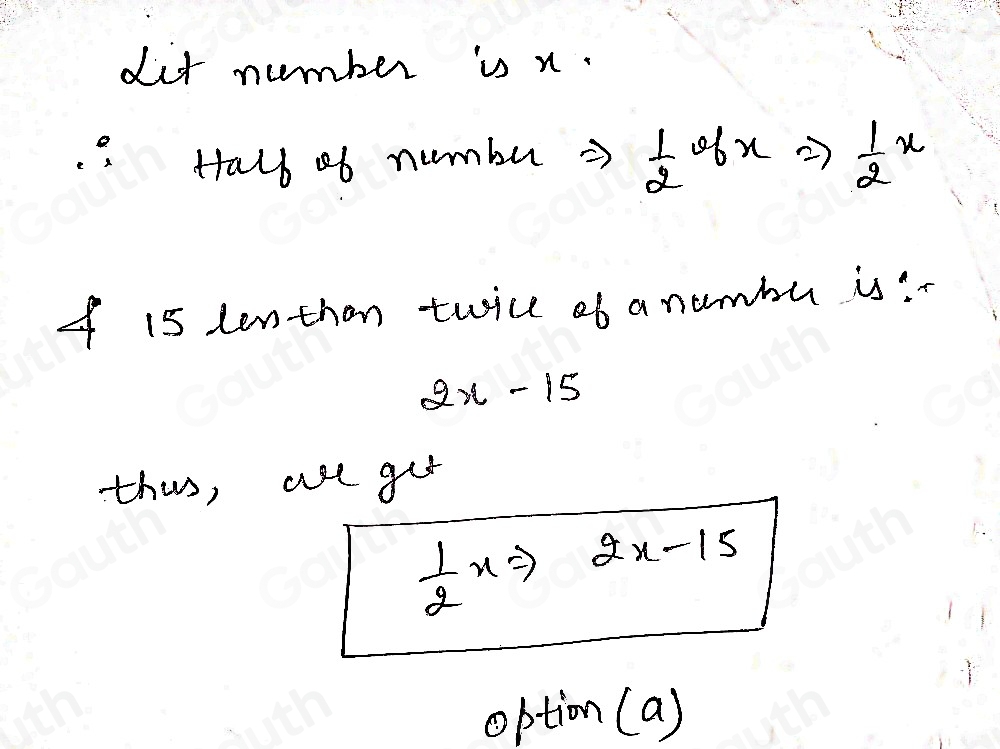 Let number is x.
∴ Half of number ⇒ 1/2 of x ⇒ 1/2 x
& 15 less than twice of a number is :-
2x - 15
thus, we get
1/2 x ⇒ 2x - 15
option (a)